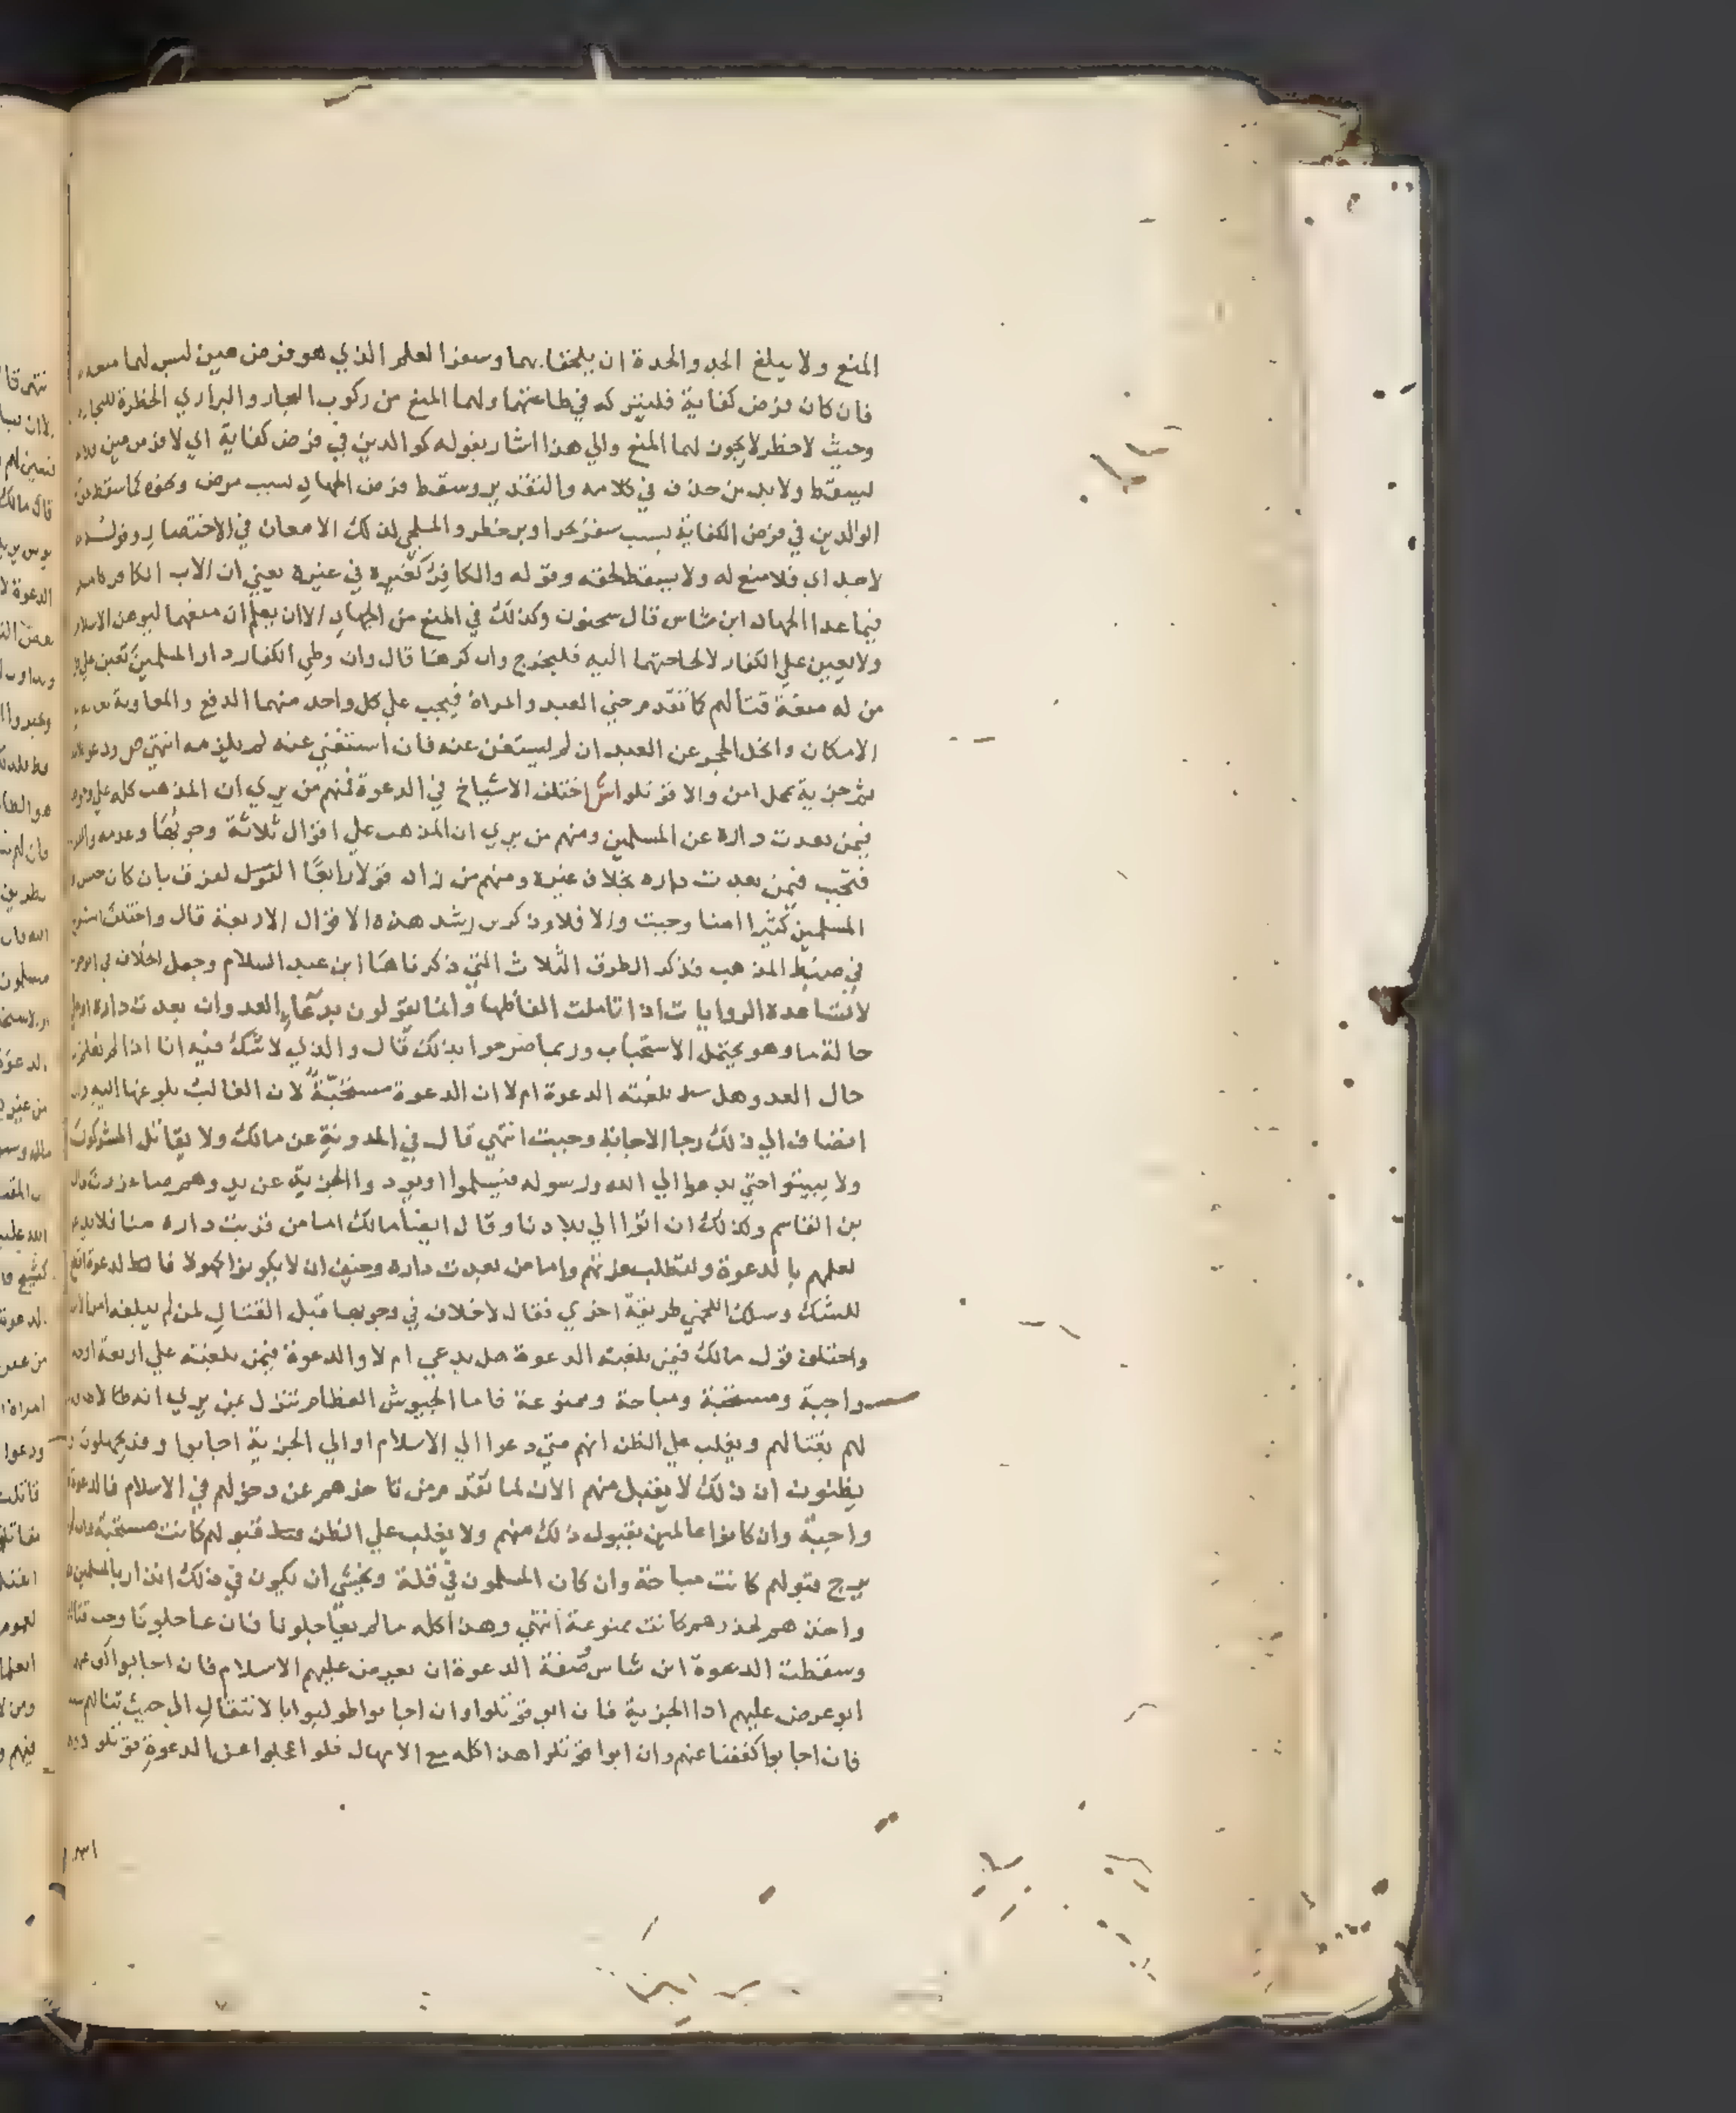 المنع ولا يبلغ الجد والجدة ان يلحقا بهما وسفر العلم الذي هو فرض عين ليس لهما منعه
فان كان فرض كفاية فليتركه في طاعتهما ولهما المنع من ركوب البحار والبراري الخطرة للتجارة
وحيث لا خطر لا يجوز لهما المنع والي هذا اشار بقوله كوالدين في فرض كفاية اي لا فرض عين فلا
ليسقط ولا بد من حذف في كلامه والتقدير وسقط فرض الجهاد لسبب مرض ونحوه كما سقط
الوالدين في فرض الكفاية بسبب سفر بحر او بر خطر والملجي لذلك الامعان في الاختصار وقوله
لا جد اي فلا منع له ولا يسقط لحقه وقوله والكافر كغيره في غيره يعني ان الاب الكافر كالمسلم
فيما عدا الجهاد ابن شاس قال سحنون وكذلك في المنع من الجهاد الا ان يعلم ان منعهما ليوهن الاسلام
ولا يعين علي الكفار لا لحاجتهما اليه فليخرج وان كرها قال وان وطي الكفار دار المسلمين تعين علي
من له منعة قتالهم كما تقدم حتي العبد والمراة فيجب علي كل واحد منهما الدفع والمعاونة
الامكان وانحل الحجر عن العبد ان لم يستغن عنه فان استغني عنه لم يلزمه انتهي ص ودعوا
ثم جزية بمحل امن والا قوتلوا ش اختلف الاشياخ في الدعوة فمنهم من يري ان المذهب كله علي
فيمن بعدت داره عن المسلمين ومنهم من يري ان المذهب علي اقوال ثلاثة وجوبها وعدمه
فتجب فيمن بعدت داره بخلاف غيره ومنهم من زاد قولا رابعا الفرق بان كان جيش
المسلمين كثيرا امنا وجبت والا فلا وذكر بن رشد هذه الاقوال الاربعة قال واختلف الشيوخ
في ضبط المذهب فذكر الطرق الثلاث التي ذكرناها ابن عبد السلام وجعل الخلاف في الوجوب
لا تساعده الروايات اذا تاملت الفاظها وانما يقولون بدعاء العدو ان بعدت داره
حالة ما وهو يحتمل الاستحباب وربما صرحوا بذلك قال والذي لا شك فيه انا اذا لم نعلم
حال العدو هل بلغته الدعوة ام لا ان الدعوة مستحبة لان الغالب بلوغها اليه
انضاف الي ذلك رجا الاجابة وجبت انتهي قال في المدونة عن مالك ولا يقاتل المشركون
ولا يبيتوا حتي يدعوا الي الله ورسوله فيسلموا او يودوا الجزية عن يد وهم صاغرون قال
بن القاسم وكذلك ان اتوا الي بلادنا وقال ايضا مالك اما من قربت داره منا فلا يدعي
لعلمهم بالدعوة ولتطلب غرتهم واما من بعدت داره وخيف ان لا يكونوا كهولا فالدعوة اقطع
للشك وسلك اللخمي طريقة اخري فقال لا خلاف في وجوبها قبل القتال لمن لم يبلغه امر
واختلف قول مالك فيمن بلغته الدعوة هل يدعي ام لا والدعوة فيمن بلغته علي اربعة اوجه
واجبة ومستحبة ومباحة وممنوعة فاما الجيوش العظام تنزل بمن يري انه لا طاقة
لهم بقتالهم ويغلب علي الظن انهم متي دعوا الي الاسلام او الي الجزية اجابوا وقد يجهلون
يظنون ان ذلك لا يقبل منهم الان لما تقدم من تاخرهم عن دخولهم في الاسلام فالدعوة
واجبة وان كانوا عالمين بقبول ذلك منهم ولا يغلب علي الظن قبولهم كانت مستحبة
يرج قبولهم كانت مباحة وان كان المسلمون في قلة ويخشي ان يكون في ذلك انذار بالمسلمين
واخذهم لحذرهم كانت ممنوعة انتهي وهذا كله ما لم يعاجلونا فان عاجلونا وجب قتالهم
وسقطت الدعوة ابن شاس صفة الدعوة ان يعرض عليهم الاسلام فان اجابوا كف عنهم
ابو عرض عليهم ادا الجزية فان ابو قوتلوا وان اجابوا طولبوا بالانتقال الي حيث تنالهم
فان اجابوا كففنا عنهم وان ابوا قوتلوا هذا كله مع الامهال فلو اعجلوا عن الدعوة قوتلو دون